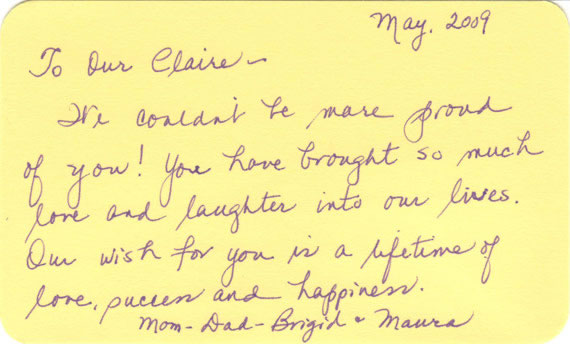 May, 2009
To Our Claire –
We couldn't be more proud
of you! You have brought so much
love and laughter into our lives.
Our wish for you is a lifetime of
love, success and happiness.
Mom - Dad - Brigid & Maura